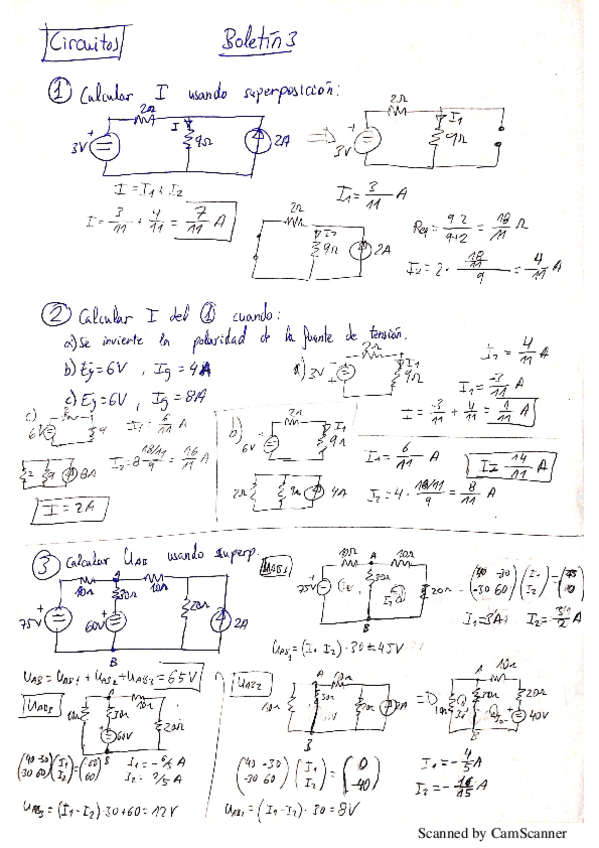 Circuitos Boletín 3
① Calcular I usando superposición:
2Ω
3V
I
9Ω
2A
⇒
2Ω
3V
I₁
9Ω
I = I₁ + I₂
I = 3/11 + 4/11 = 7/11 A
I₁ = 3/11 A
2Ω
I₂
9Ω
2A
Req = 9·2/9+2 = 18/11 Ω
I₂ = 2 · (18/11)/9 = 4/11 A
② Calcular I del ① cuando:
a) Se invierte la polaridad de la fuente de tensión.
b) Eg = 6V , Ig = 4A
c) Eg = 6V , Ig = 8A
a) 3V
2Ω
I₁
9Ω
I₂ = 4/11 A
I₁ = -3/11 A
I = -3/11 + 4/11 = 1/11 A
c)
6V
9
I₁ = 6/11 A
2
9
8A
I₂ = 8 (18/11)/9 = 16/11 A
I = 2A
b)
6V
2Ω
I₁
9Ω
I₁ = 6/11 A
I = 14/11 A
2Ω
9Ω
4A
I₂ = 4 · (18/11)/9 = 8/11 A
③ Calcular UAB usando superp.
75V
10Ω
A
30Ω
60V
10Ω
20Ω
2A
B
UAB1
75V
10Ω
A
30Ω
10Ω
20Ω
B
(40 -30
-30 60) (I₁
I₂) = (75
0)
I₁ = 3A
UAB₁ = (I₁ - I₂) · 30 = 45V
UAB = UAB₁ + UAB₂ + UAB₃ = 65V
UAB3
10Ω
30Ω
60V
10Ω
20Ω
B
UAB2
10Ω
A
10Ω
B
2A
⇒
A
10Ω
30Ω
20Ω
40V
B
UAB₃ = (I₁ - I₂) · 30 + 60 = 12V
(40 -30
-30 60) (I₁
I₂) = (0
-40)
I₁ = -4/5 A
I₂ = -16/15 A
UAB₂ = (I₁ - I₂) · 30 = 8V
Scanned by CamScanner